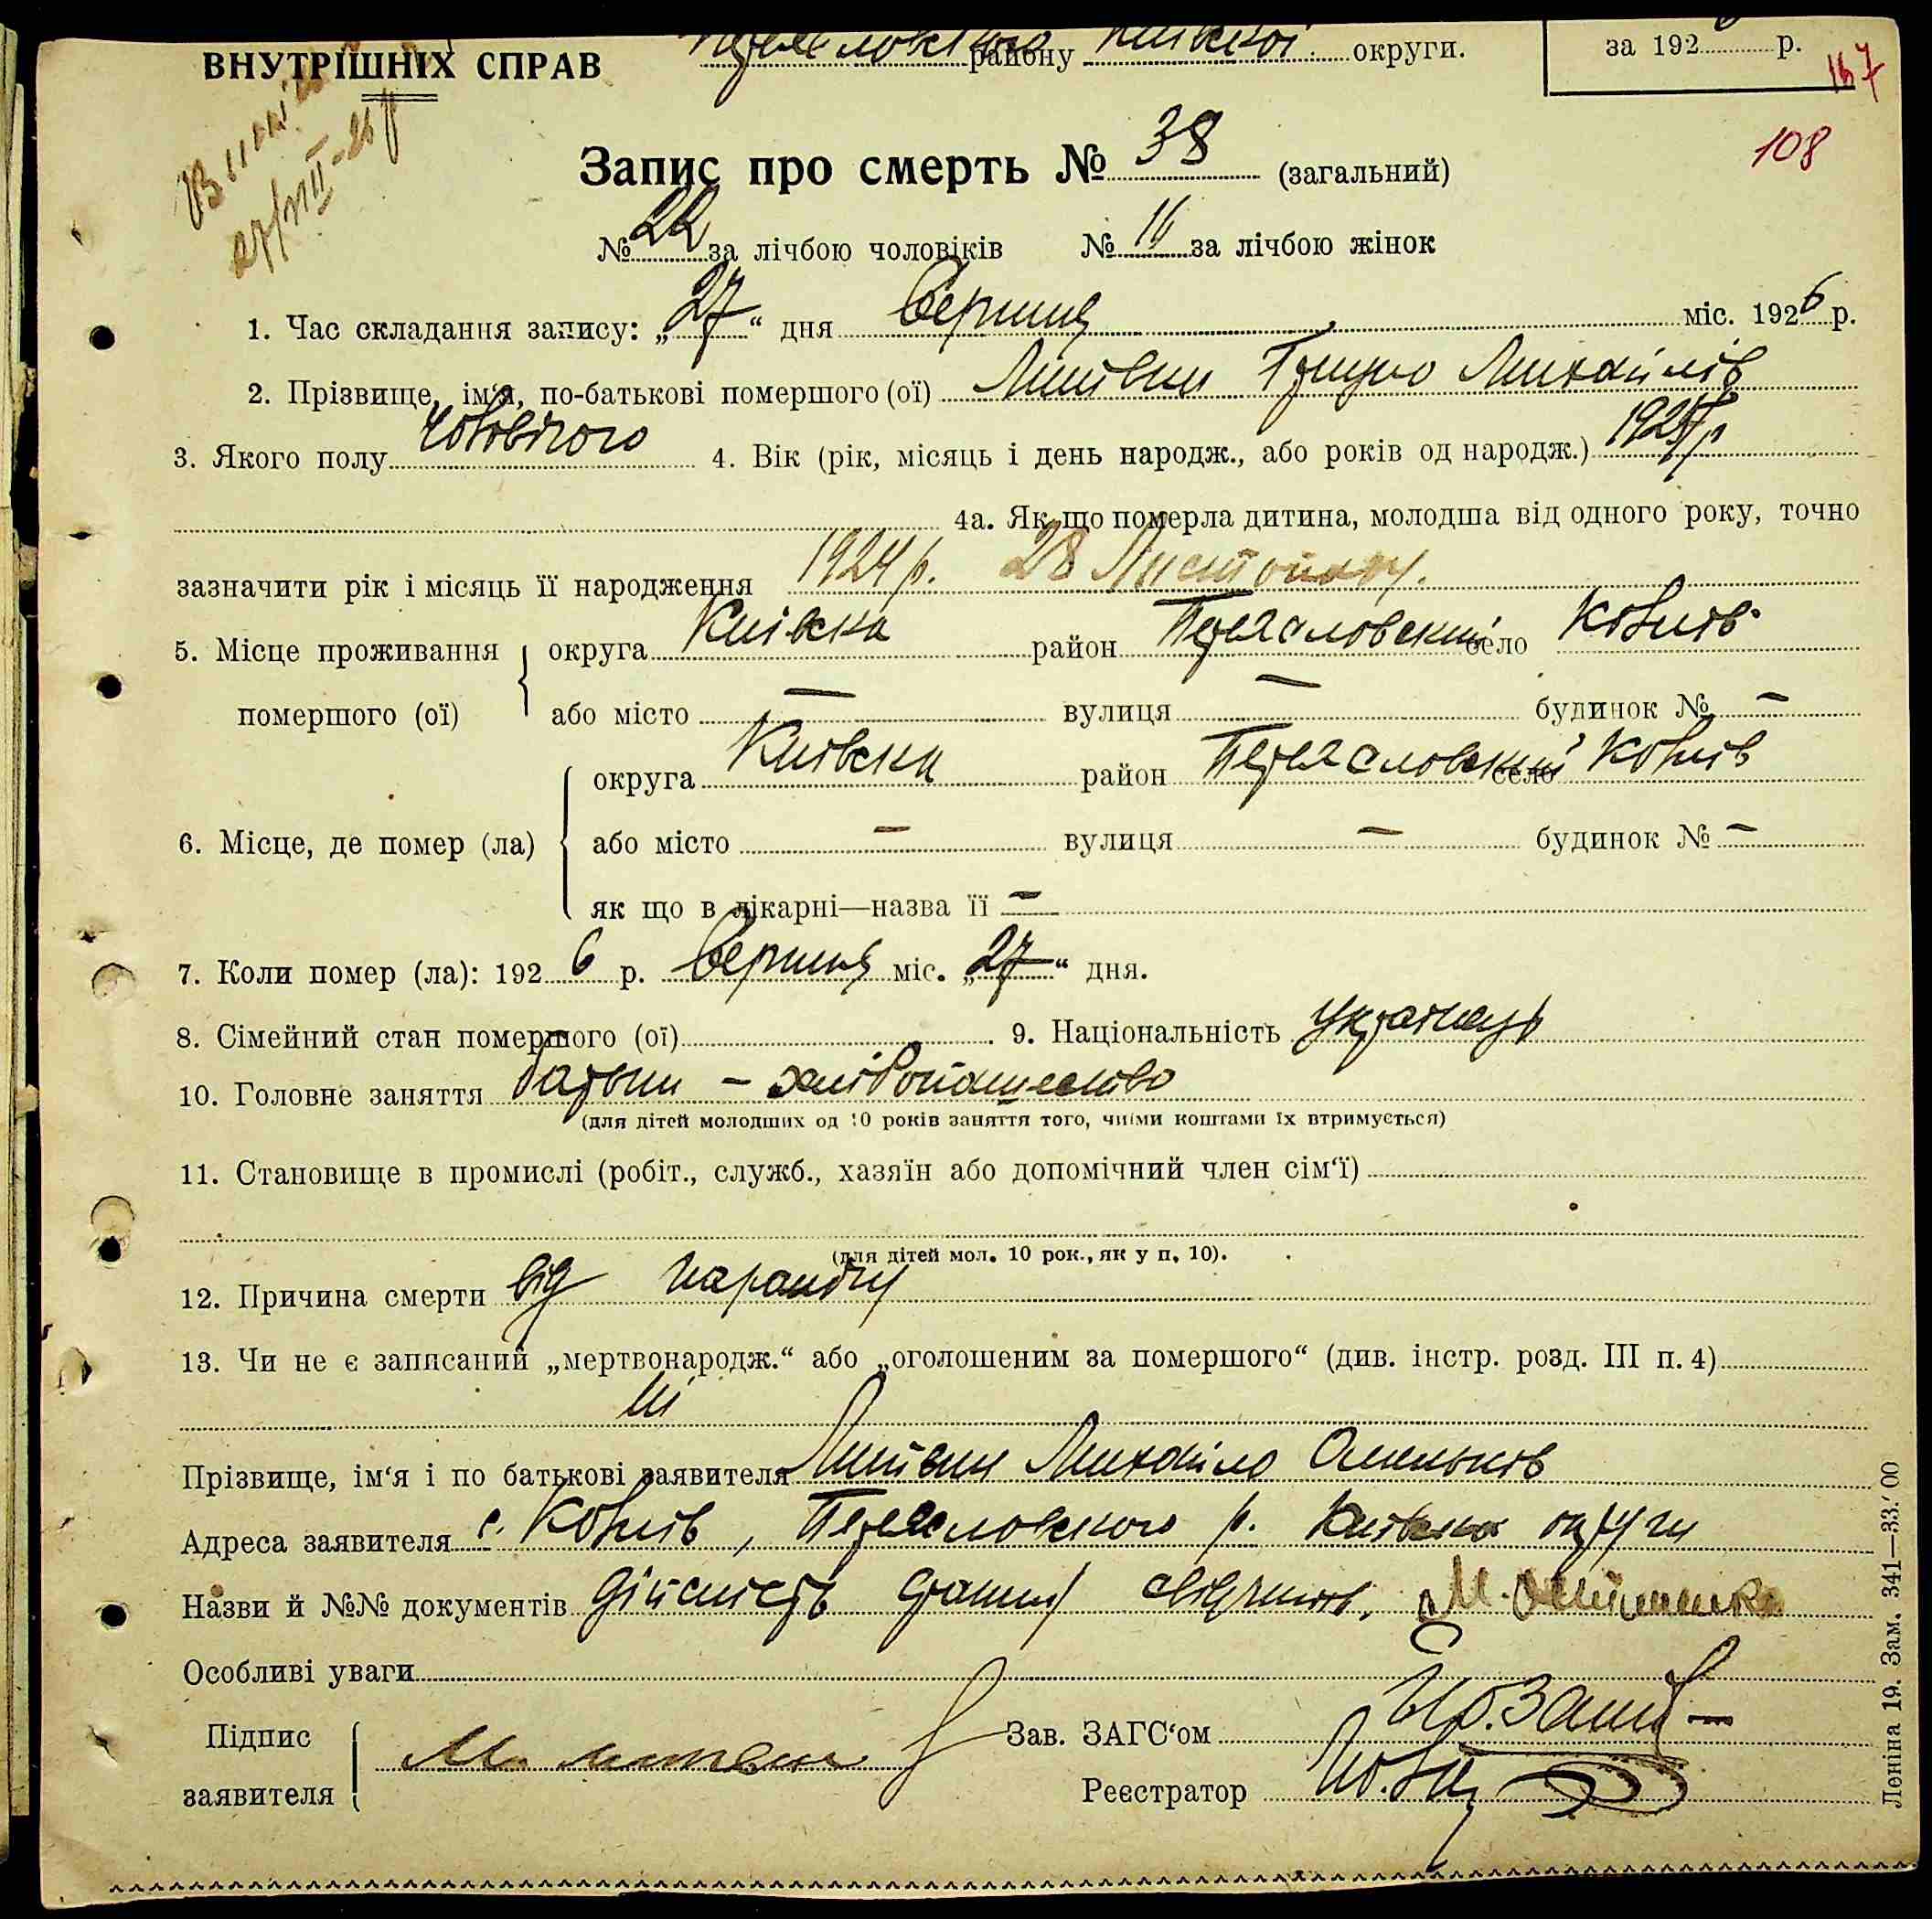 ВНУТРІШНІХ СПРАВ району Київської округи. за 192 р.
167
108
27/VIII-26 р
Запис про смерть № 38 (загальний)
№ 22 за лічбою чоловіків № 16 за лічбою жінок
1. Час складання запису: „27“ дня Серпня міс. 1926 р.
2. Прізвище, ім'я, по-батькові помершого (ої) Литвин Грицько Михайлів
3. Якого полу Чоловічого 4. Вік (рік, місяць і день народж., або років од народж.)
4а. Як що померла дитина, молодша від одного року, точно
зазначити рік і місяць її народження 1924 р. 28 Листопаду.
5. Місце проживання помершого (ої) округа Київска район Переясловский село Ковнів
або місто — вулиця — будинок № —
6. Місце, де помер (ла) округа Київска район Переясловский село Ковнів
або місто — вулиця — будинок № —
як що в лікарні—назва її —
7. Коли помер (ла): 1926 р. Серпня міс. „27“ дня.
8. Сімейний стан помершого (ої) . 9. Національність українець
10. Головне заняття батьки - хлібопашество
(для дітей молодших од 10 років заняття того, чиїми коштами їх втримується)
11. Становище в промислі (робіт., служб., хазяїн або допомічний член сім'ї)
(для дітей мол. 10 рок., як у п. 10).
12. Причина смерти від
13. Чи не є записаний „мертвонародж.“ або „оголошеним за помершого“ (див. інстр. розд. III п. 4)
ні
Прізвище, ім'я і по батькові заявителя Литвин Михайло
Адреса заявителя с. Ковнів, Переясловского р. Київска округи
Назви й №№ документів дійсність даних свідчить. М.
Особливі уваги
Підпис заявителя М. Литвин
Зав. ЗАГС'ом
Реєстратор
Леніна 19. Зам. 341—33.'00